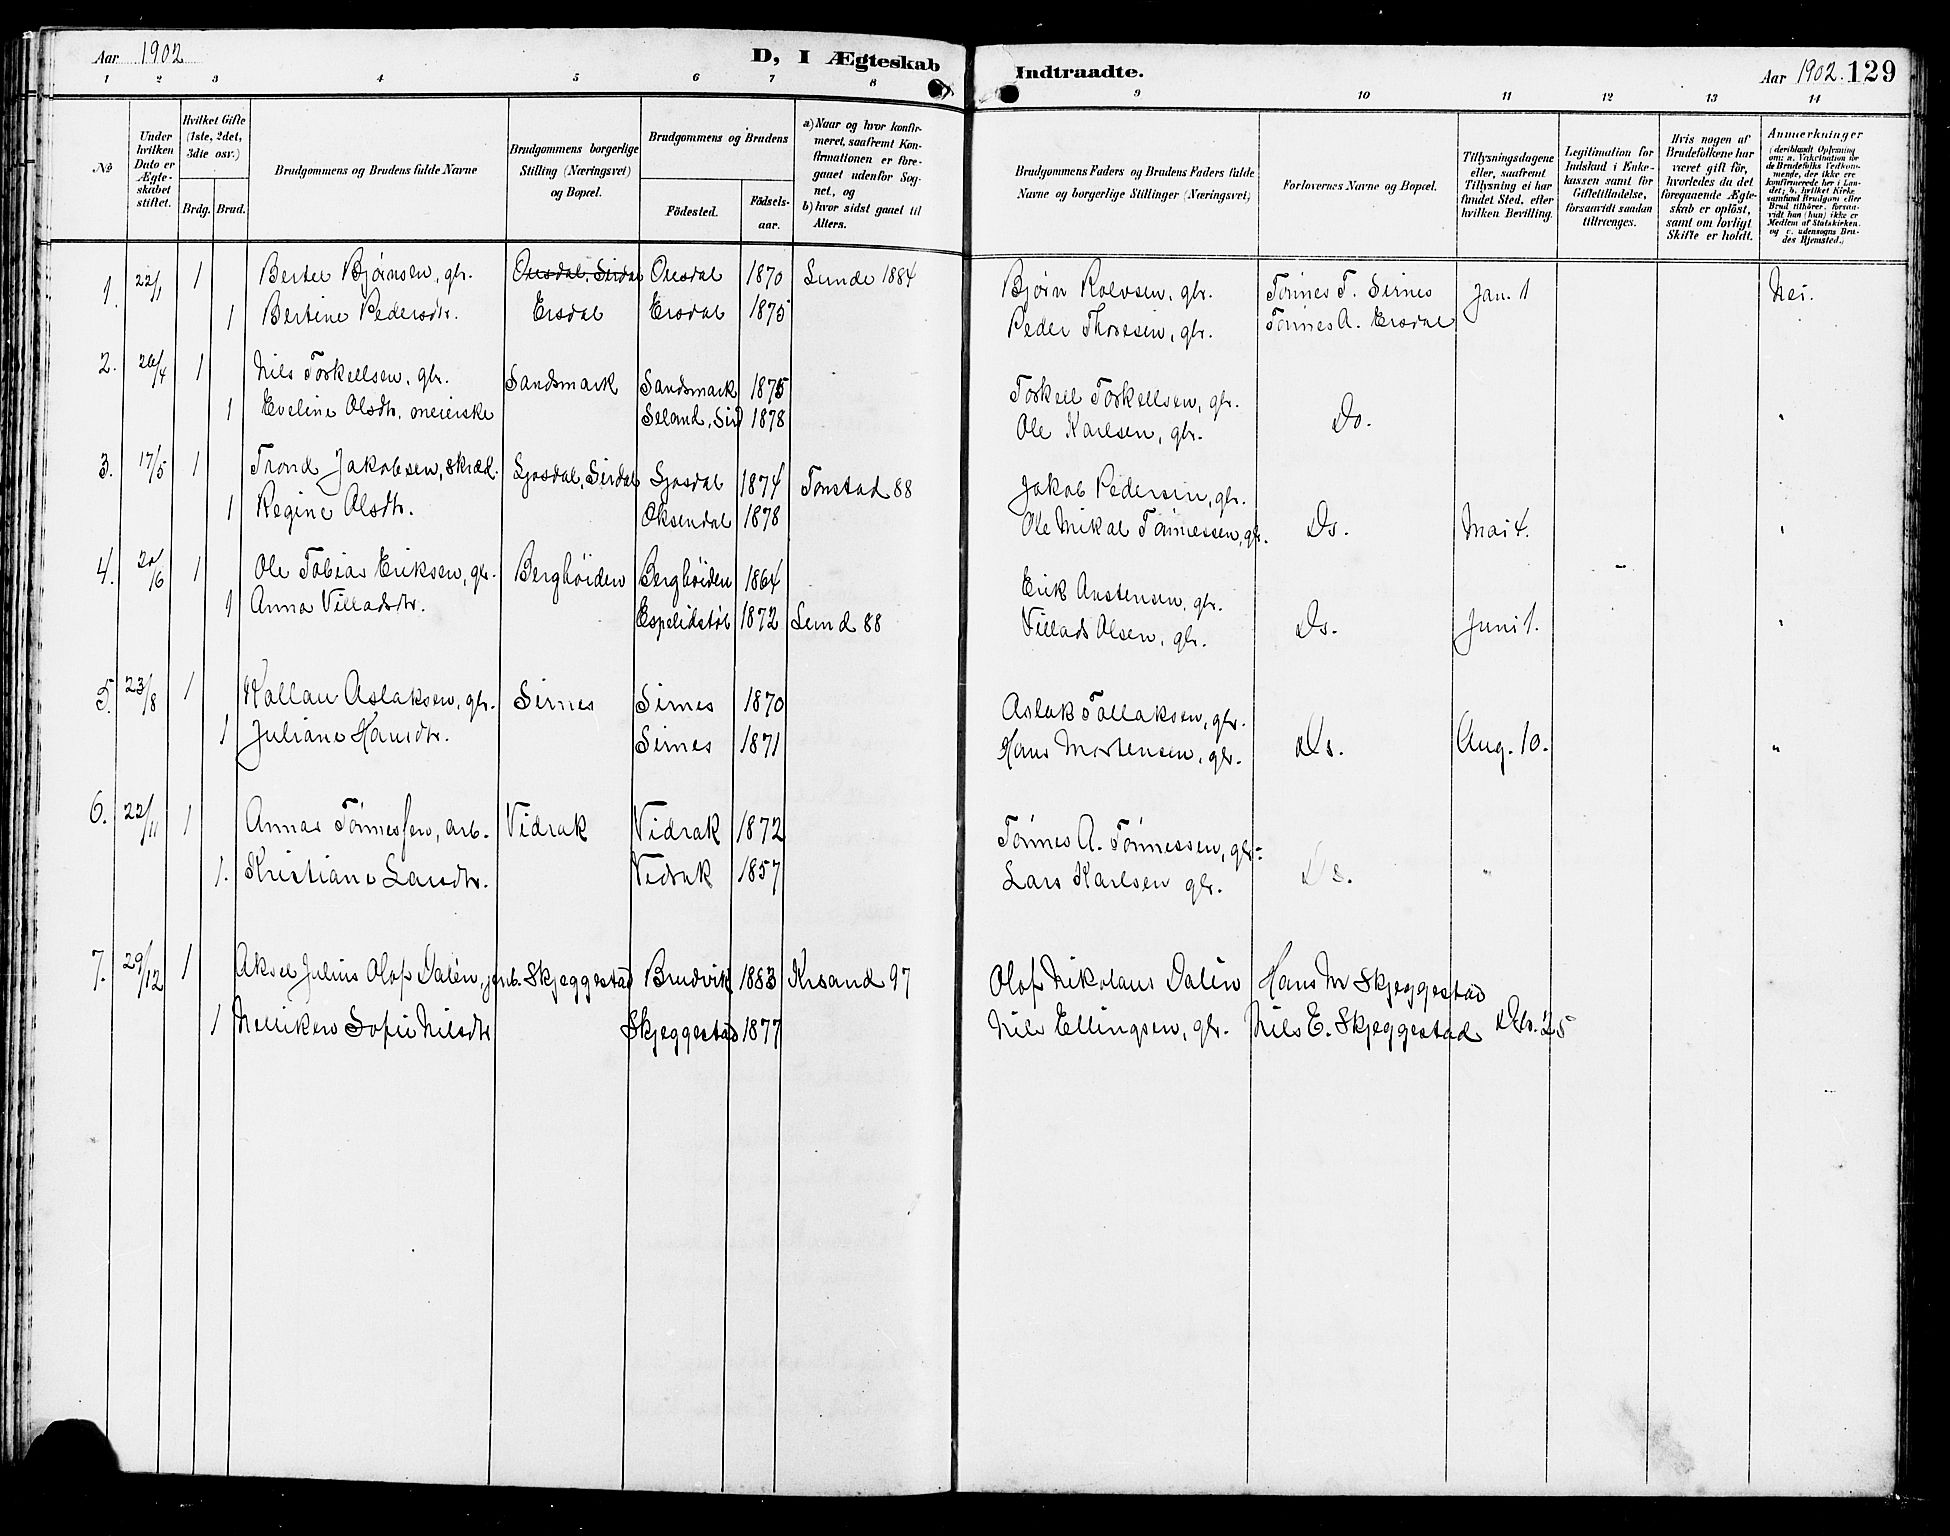 Aar 1902
D, I Ægteskab Indtraadte.
Aar 1902. 129
1 2 3 4 5 6 7 8 9 10 11 12 13 14
No
Under hvilken Dato er Ægteskabet stiftet.
Hvilket Gifte (1ste, 2det, 3die osv.)
Brdg. Brud.
Brudgommens og Brudens fulde Navne
Brudgommens borgerlige Stilling (Næringsvei) og Bopæl.
Brudgommens og Brudens
Födested. Födselsaar.
a) Naar og hvor konfirmeret, saafremt Konfirmationen er foregaaet udenfor Sognet, og
b) hvor sidst gaaet til Alters.
Brudgommens Faders og Brudens Faders fulde Navne og borgerlige Stillinger (Næringsvei)
Forlovernes Navne og Bopæl.
Tillysningsdagene eller, saafremt Tillysning ei har fundet Sted, efter hvilken Bevilling.
Legitimation for Indskud i Enkekassen samt for Giftetilladelse, forsaavidt saadan tiltrænges.
Hvis nogen af Brudefolkene har været gift för, hvorledes da det foregaaende Ægteskab er oplöst, samt om lovligt Skifte er holdt.
Anmærkninger (deriblandt Oplysning om: a. Vakcination for de Brudefolks Vedkommende, der ikke ere konfirmerede her i Landet; b. hvilket Kirkesamfund Brudgom eller Brud tilhörer, forsaavidt han (hun) ikke er Medlem af Statskirken, og c. udensogns Brudes Hjemsted.)
1. 22/1 1 Berter Bjørnsen, gbr. Ousdal, Sirdal Ousdal 1870 Lunde 1884 Bjørn Roevsen, gbr. Tønnes T. Sirnes Jan. 1 Nei.
1 Bertine Pedersdtr. Ersdal Ersdal 1875 Peder Thoresen, gbr. Tønnes A. Ersdal
2. 26/4 1 Nils Torkellsen, gbr. Sandsmark Sandsmark 1875 Torkell Torkellsen, gbr.
1 Eveline Olsdtr. meierske Seland, Sird 1878 Ole Karlsen, gbr. Do. "
3. 17/5 1 Trond Jakobsen, skræd. Ljosdal, Sirdal Ljosdal 1874 Tonstad 88 Jakob Pedersen, gbr.
1 Regine Olsdtr. Øksendal 1878 Ole Mikal Tønnessen, gbr. Ds. Mai 4. "
4. /6 1 Ole Tobias Eriksen, gbr. Berghøiden Berghøiden 1864 Erik Austensen, gbr.
1 Anna Villadsdtr. Espelidstøl 1872 Lund 88 Villads Olsen, gbr. Ds. Juni 1. "
5. 23/8 1 Aslaksen, gbr. Sirnes Sirnes 1870 Aslak Tallaksen, gbr.
1 Juliane Hansdtr. Sirnes 1871 Hans Mortensen, gbr. Ds. Aug. 10. "
6. 22/11 1 Annas Tønnessen, arb. Vidrak Vidrak 1872 Tønnes A. Tønnessen, gbr.
1. Kristiane Larsdtr. Vidrak 1857 Lars Karlsen gbr. Ds. "
7. 29/12 1 Aksel Julius Olof Dalén, jernb. Skjeggestad Brudvik 1883 Krsand 97 Olof Nikolaus Dalén Hans M Skjeggestad
1 Nelliken Sofie Nilsdtr Skjeggestad 1877 Nils Ellingsen, gbr. Nils E. Skjeggestad Db. 25